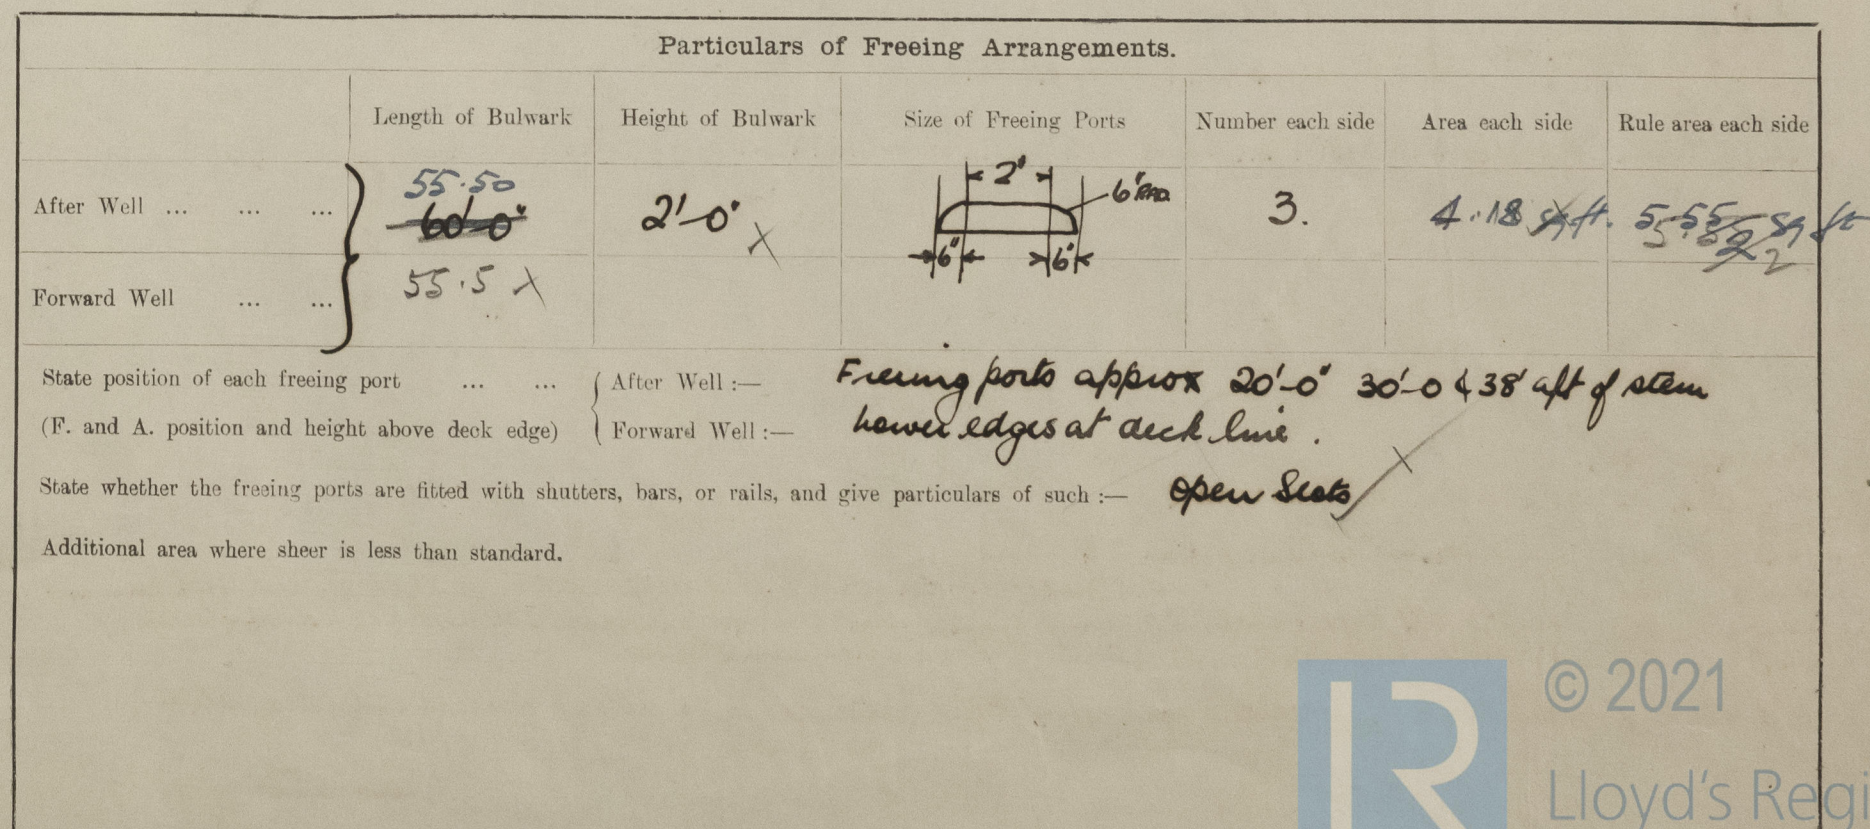 Particulars of Freeing Arrangements.
Length of Bulwark Height of Bulwark Size of Freeing Ports Number each side Area each side Rule area each side
After Well ... ... ... 55.50 60'-0" 2'-0" 2' 6" RAD. 6" 6" 3. 4.18 sq ft. 5.55 sq ft
Forward Well ... ... 55.5
State position of each freeing port ... ... After Well :— Freeing ports approx 20'-0" 30'-0 & 38' aft of stem
(F. and A. position and height above deck edge) Forward Well :— Lower edges at deck line.
State whether the freeing ports are fitted with shutters, bars, or rails, and give particulars of such :— Open Slots
Additional area where sheer is less than standard.
LR
© 2021
Lloyd's Regi